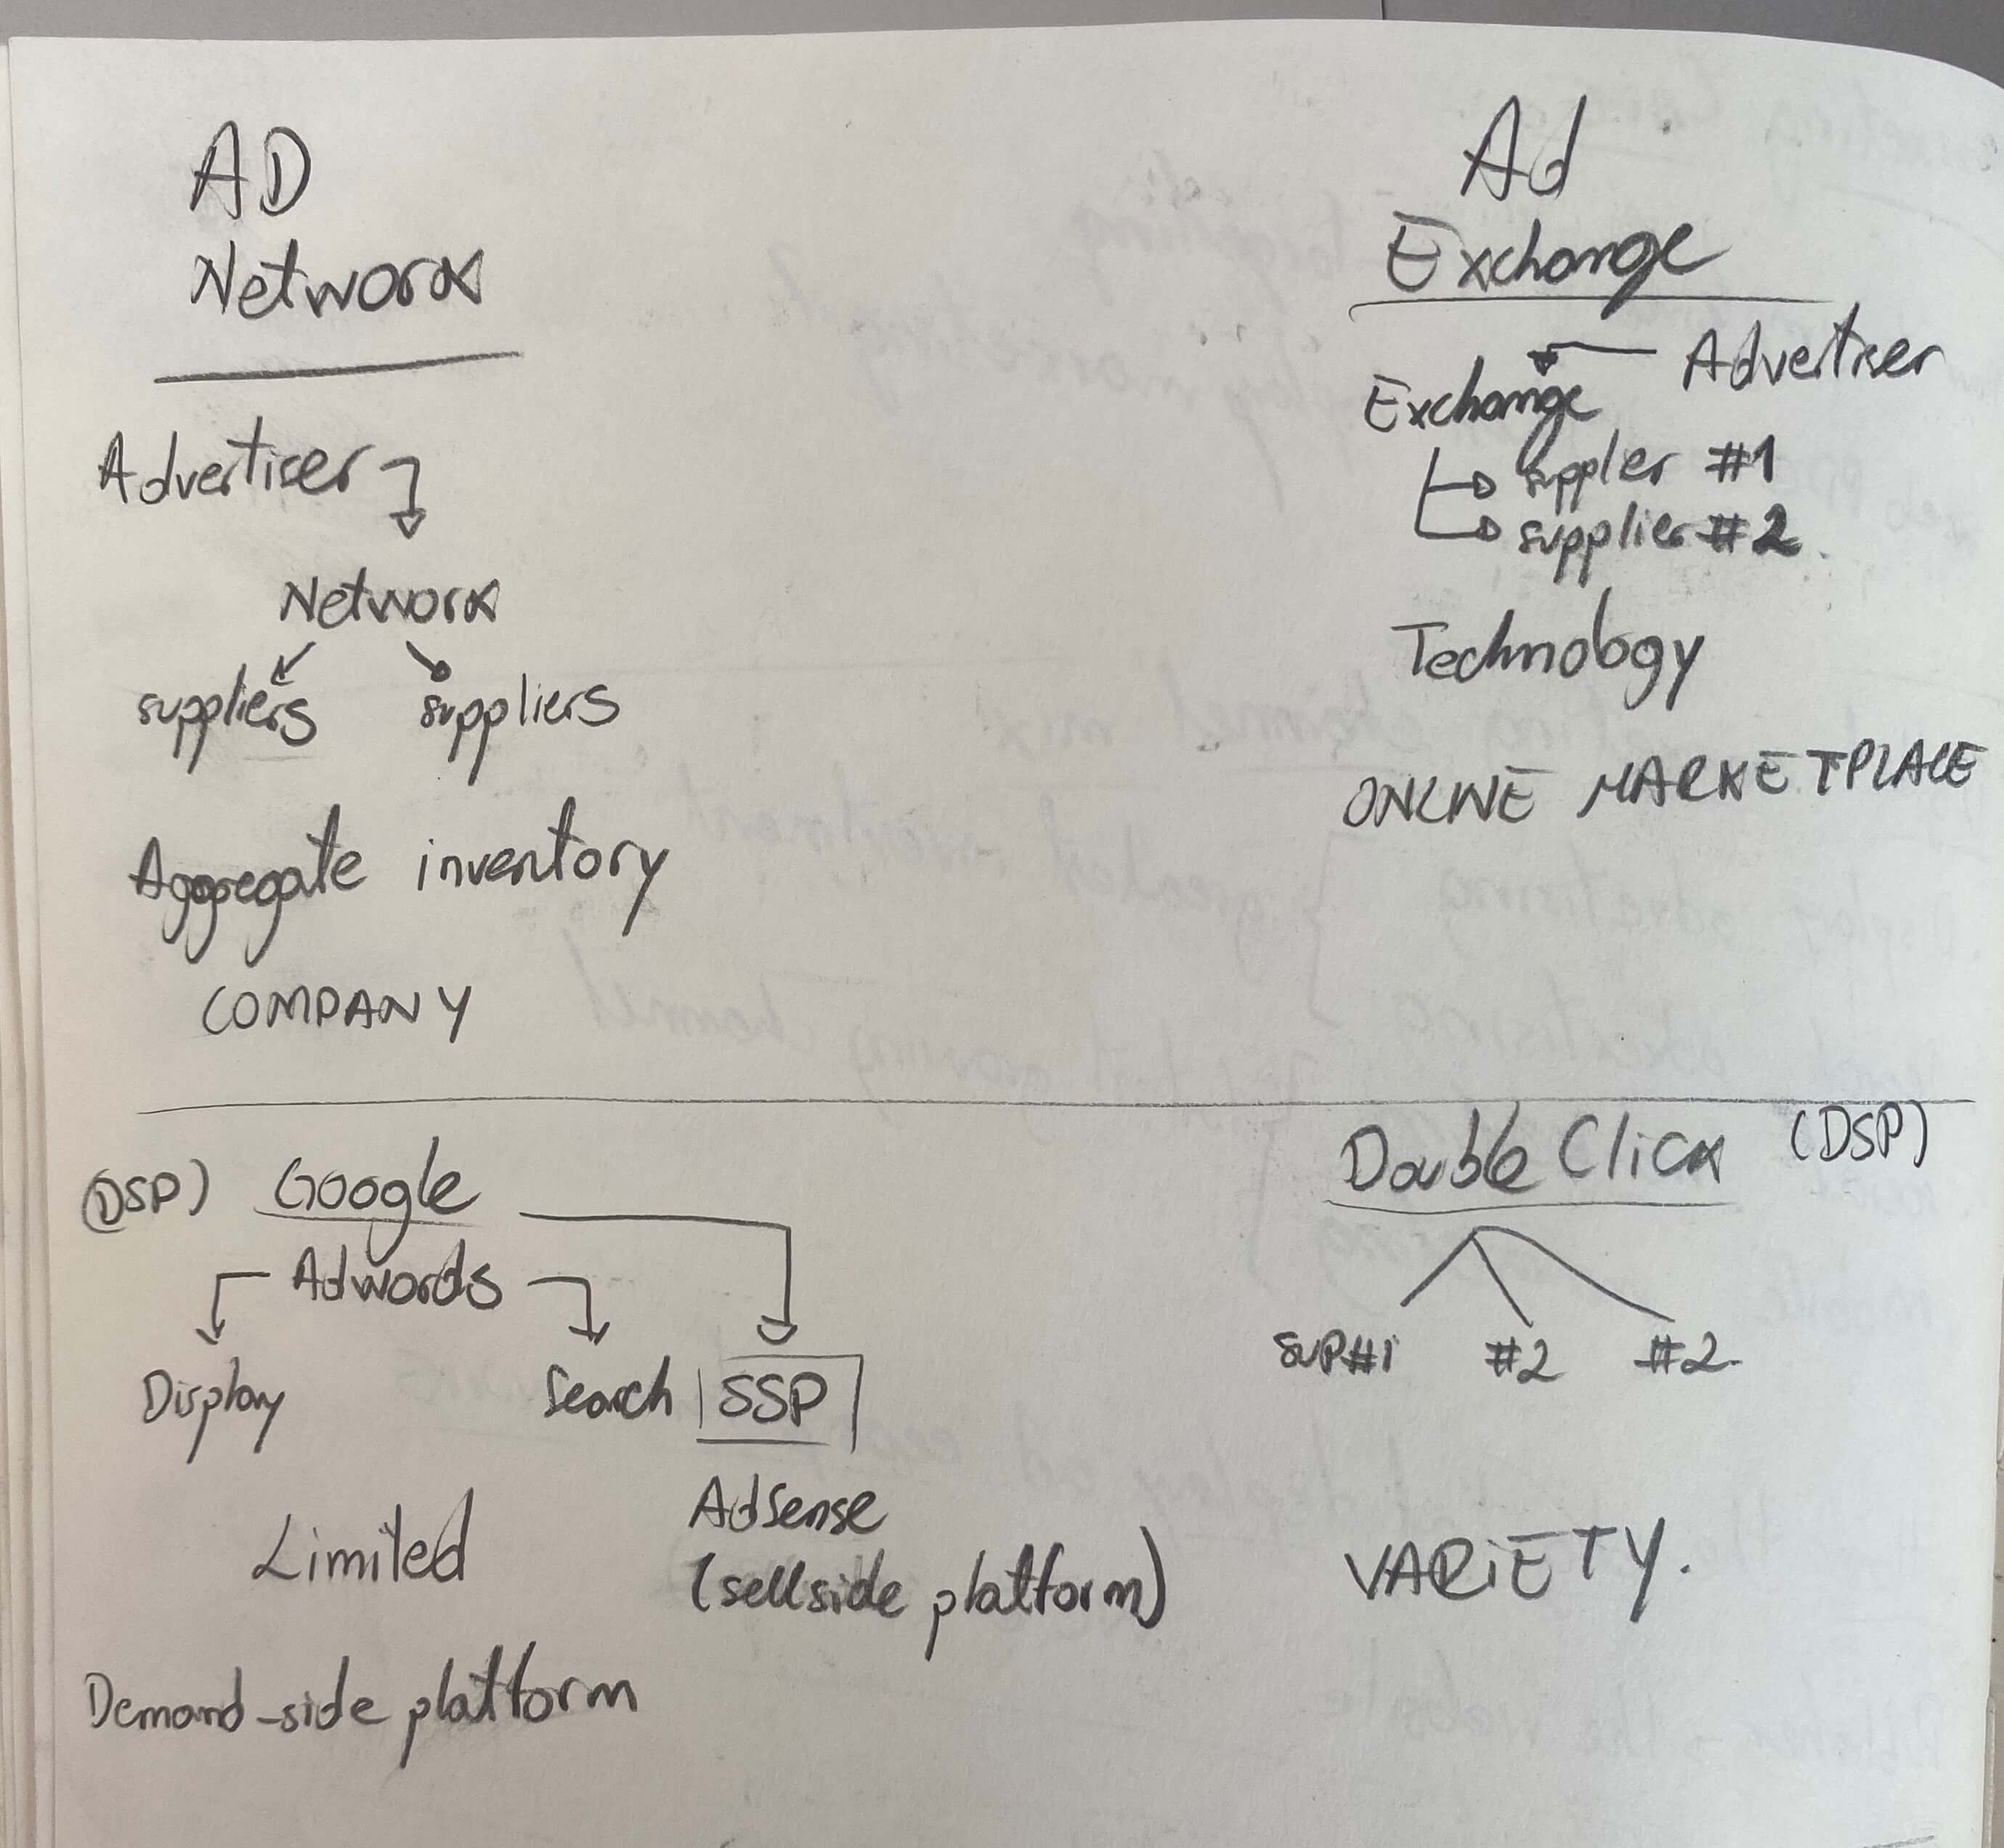 AD
Network
Advertiser
Network
suppliers suppliers
Aggregate inventory
COMPANY
Ad
Exchange
Advertiser
Exchange
supplier #1
supplier #2.
Technology
ONLINE MARKETPLACE
(DSP) Google
Adwords
Display Search SSP
Limited
AdSense
(sellside platform)
Demand-side platform
Double Click (DSP)
SUP#1 #2 #2.
VARIETY.